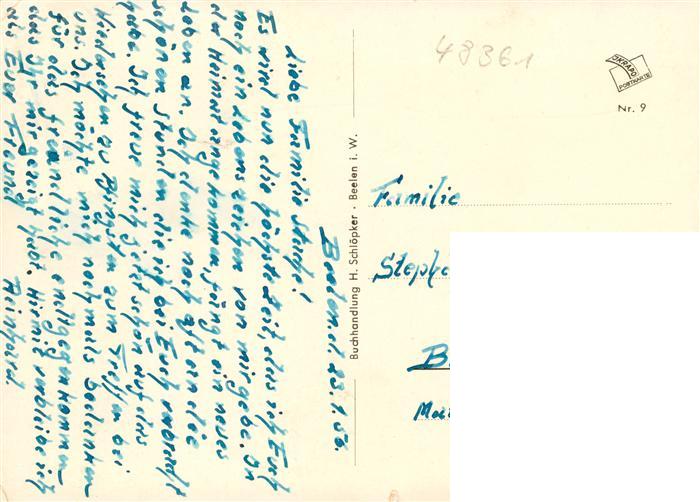 Beelen, d. 23.1.56.
Liebe Familie
Es wird nun die höchste Zeit, dass ich Euch
noch ein Lebenszeichen von mir gebe. In
der Heimat angekommen, fängt ein neues
Leben an. Ich denke noch oft an die
schönen Stunden die ich bei Euch verbracht
habe. Ich freue mich jetzt schon auf das
Wiedersehen zu Pfingsten zum Treffen bei
uns. Ich möchte mich nochmals bedanken
für alles freundliche entgegenkommen
das Ihr mir gezeigt habt. Hiermit verbleibe ich
als Euer Freund
Reinhard
Buchhandlung H. Schlöpker · Beelen i. W.
48361
SKRABO
POSTKARTE
Nr. 9
Familie
Steph
B
Ma